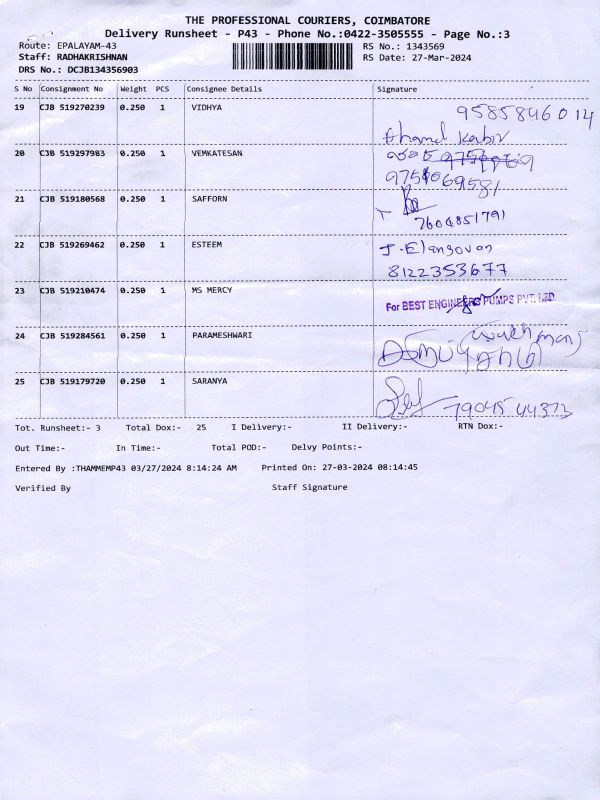 THE PROFESSIONAL COURIERS, COIMBATORE
Delivery Runsheet - P43 - Phone No.:0422-3505555 - Page No.:3
Route: EPALAYAM-43 RS No.: 1343569
Staff: RADHAKRISHNAN RS Date: 27-Mar-2024
DRS No.: DCJB134356903
S No Consignment No Weight PCS Consignee Details Signature
19 CJB 519270239 0.250 1 VIDHYA 9585846014
20 CJB 519297983 0.250 1 VEMKATESAN
9751069581
21 CJB 519180568 0.250 1 SAFFORN
7604851791
22 CJB 519269462 0.250 1 ESTEEM J. Elangovan
8122353677
23 CJB 519210474 0.250 1 MS MERCY For BEST ENGINEERS PUMPS PVT. LTD
24 CJB 519284561 0.250 1 PARAMESHWARI
25 CJB 519179720 0.250 1 SARANYA
7904544373
Tot. Runsheet:- 3 Total Dox:- 25 I Delivery:- II Delivery:- RTN Dox:-
Out Time:- In Time:- Total POD:- Delvy Points:-
Entered By :THAMMEMP43 03/27/2024 8:14:24 AM Printed On: 27-03-2024 08:14:45
Verified By Staff Signature